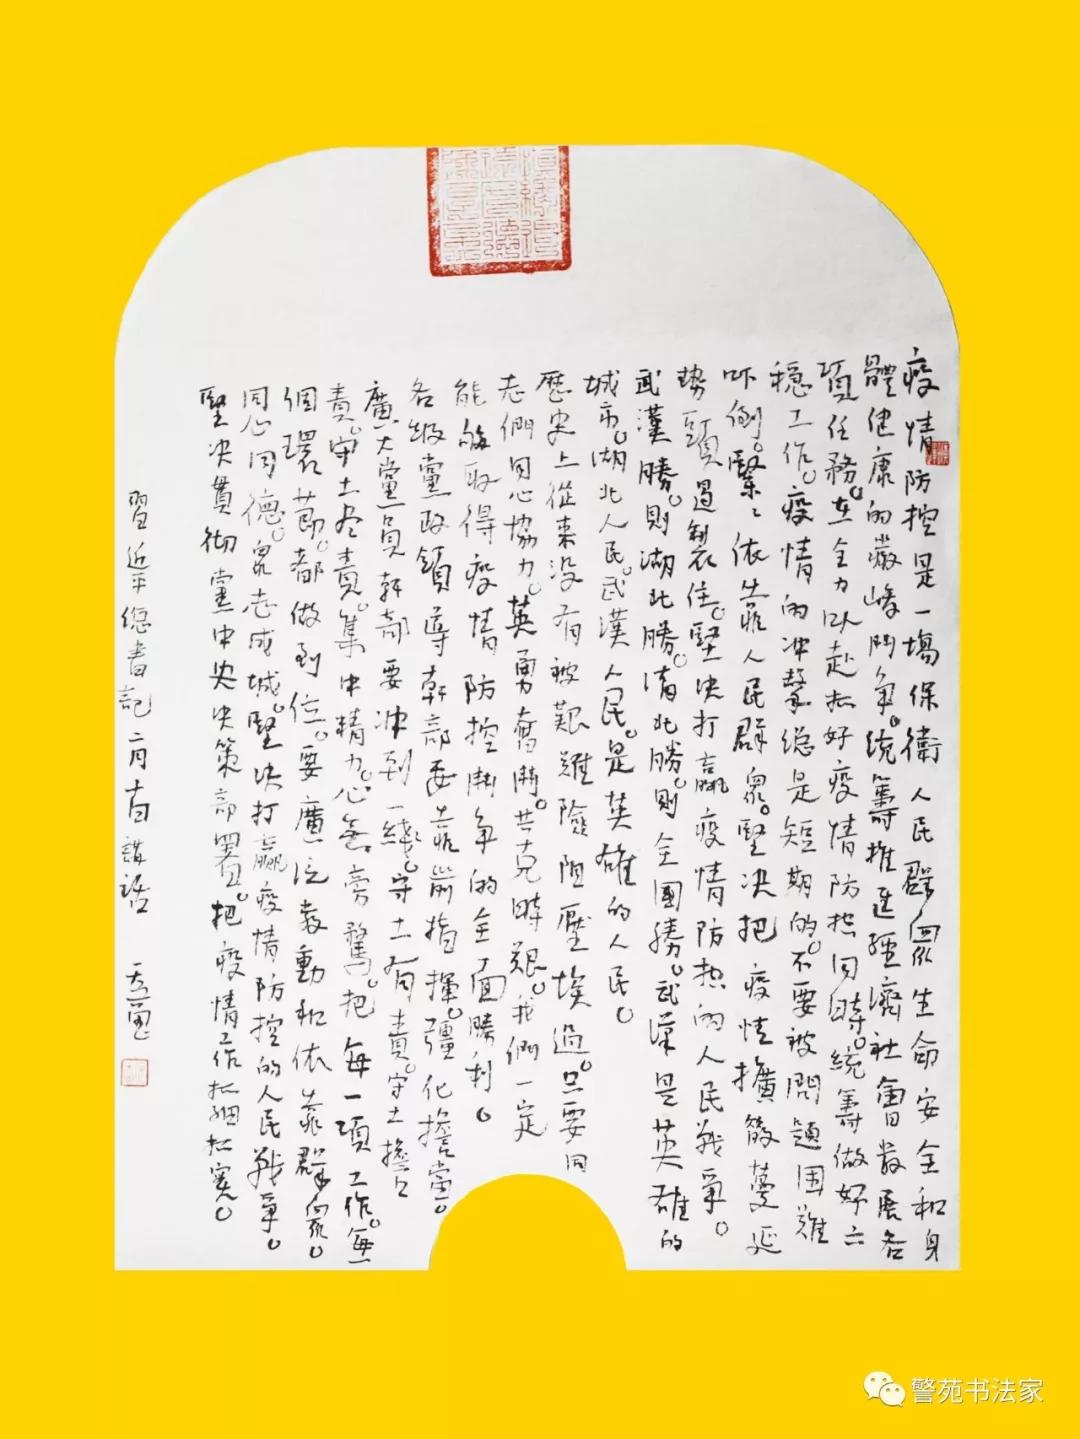 疫情防控是一場保衛人民群眾生命安全和身
體健康的嚴峻鬥争。统籌推進經濟社會發展各
項任務。在全力以赴抓好疫情防控同時。统籌做好六
穩工作。疫情的冲擊總是短期的。不要被問題困難
吓倒。緊緊依靠人民群眾。堅决把疫情擴散蔓延
势頭遏製住。堅决打贏疫情防控的人民戰爭。
武漢勝。則湖北勝。湖北勝。則全國勝。武漢是英雄的
城市。湖北人民。武漢人民。是英雄的人民。
歷史上從来没有被艱難險阻壓埃過。只要同
志們同心協力。英勇奮鬥。共克時艱。我們一定
能够取得疫情防控鬥争的全面勝利。
各级黨政領導幹部要靠前指揮。彊化擔當。
廣大黨員幹部要冲到一綫。守土有責。守土擔
責。守土尽責。集中精力。心無旁騖。把每一項工作。每一
個環莭。都做到位。要廣泛發動和依靠群眾。
同心同德。眾志成城。堅决打贏疫情防控的人民戰争。
堅决貫彻黨中央决策部署。把疫情工作抓細抓實。
習近平總書記二月十日講話
警苑书法家